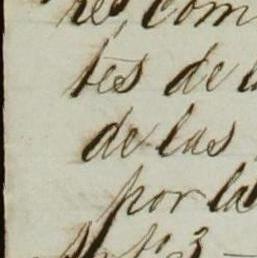 re, com
tes de l
de las
por la
Art. 3